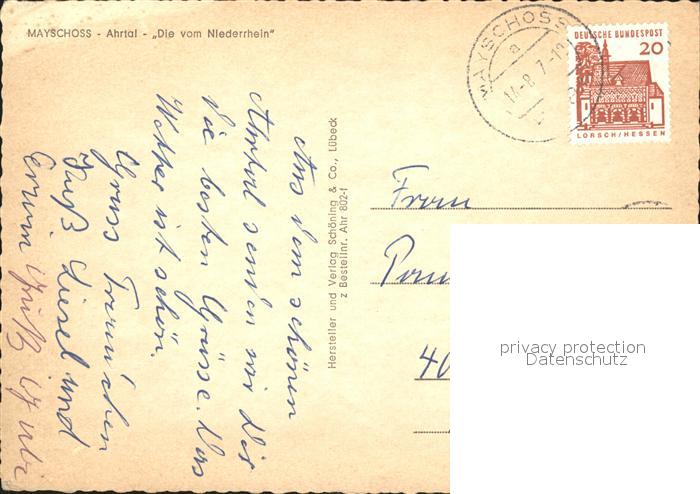 MAYSCHOSS - Ahrtal - „Die vom Niederrhein"
MAYSCHOSS
a
14-8.7-
DEUTSCHE BUNDESPOST
20
LORSCH/HESSEN
Aus dem schönen
Ahrtal senden wir Dir
die besten Grüsse. Das
Wetter ist schön.
Gruss
Gruß Liesel und
Erwin
Hersteller und Verlag Schöning & Co., Lübeck
z Bestellnr. Ahr 802-f
Frau
40
privacy protection
Datenschutz